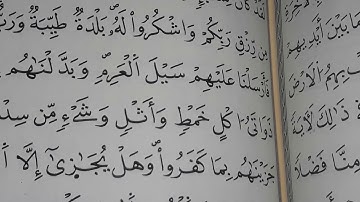 مِن رِّزْقِ رَبِّكُمْ وَاشْكُرُوا۟ لَهُۥ ۚ بَلْدَةٌ طَيِّبَةٌ وَرَبٌّ
فَأَرْسَلْنَا عَلَيْهِمْ سَيْلَ الْعَرِمِ وَبَدَّلْنَـٰهُم
ذَوَاتَىْ أُكُلٍ خَمْطٍ وَأَثْلٍ وَشَىْءٍ مِّن سِدْ
جَزَيْنَـٰهُم بِمَا كَفَرُوا۟ ۖ وَهَلْ نُجَـٰزِىٓ إِلَّا
مَا بَيْنَ أَيْدِيهِمْ
بِهِمُ الْأَرْضَ
ذَٰلِكَ لَآيَةً
مِنَّا فَضْلًا